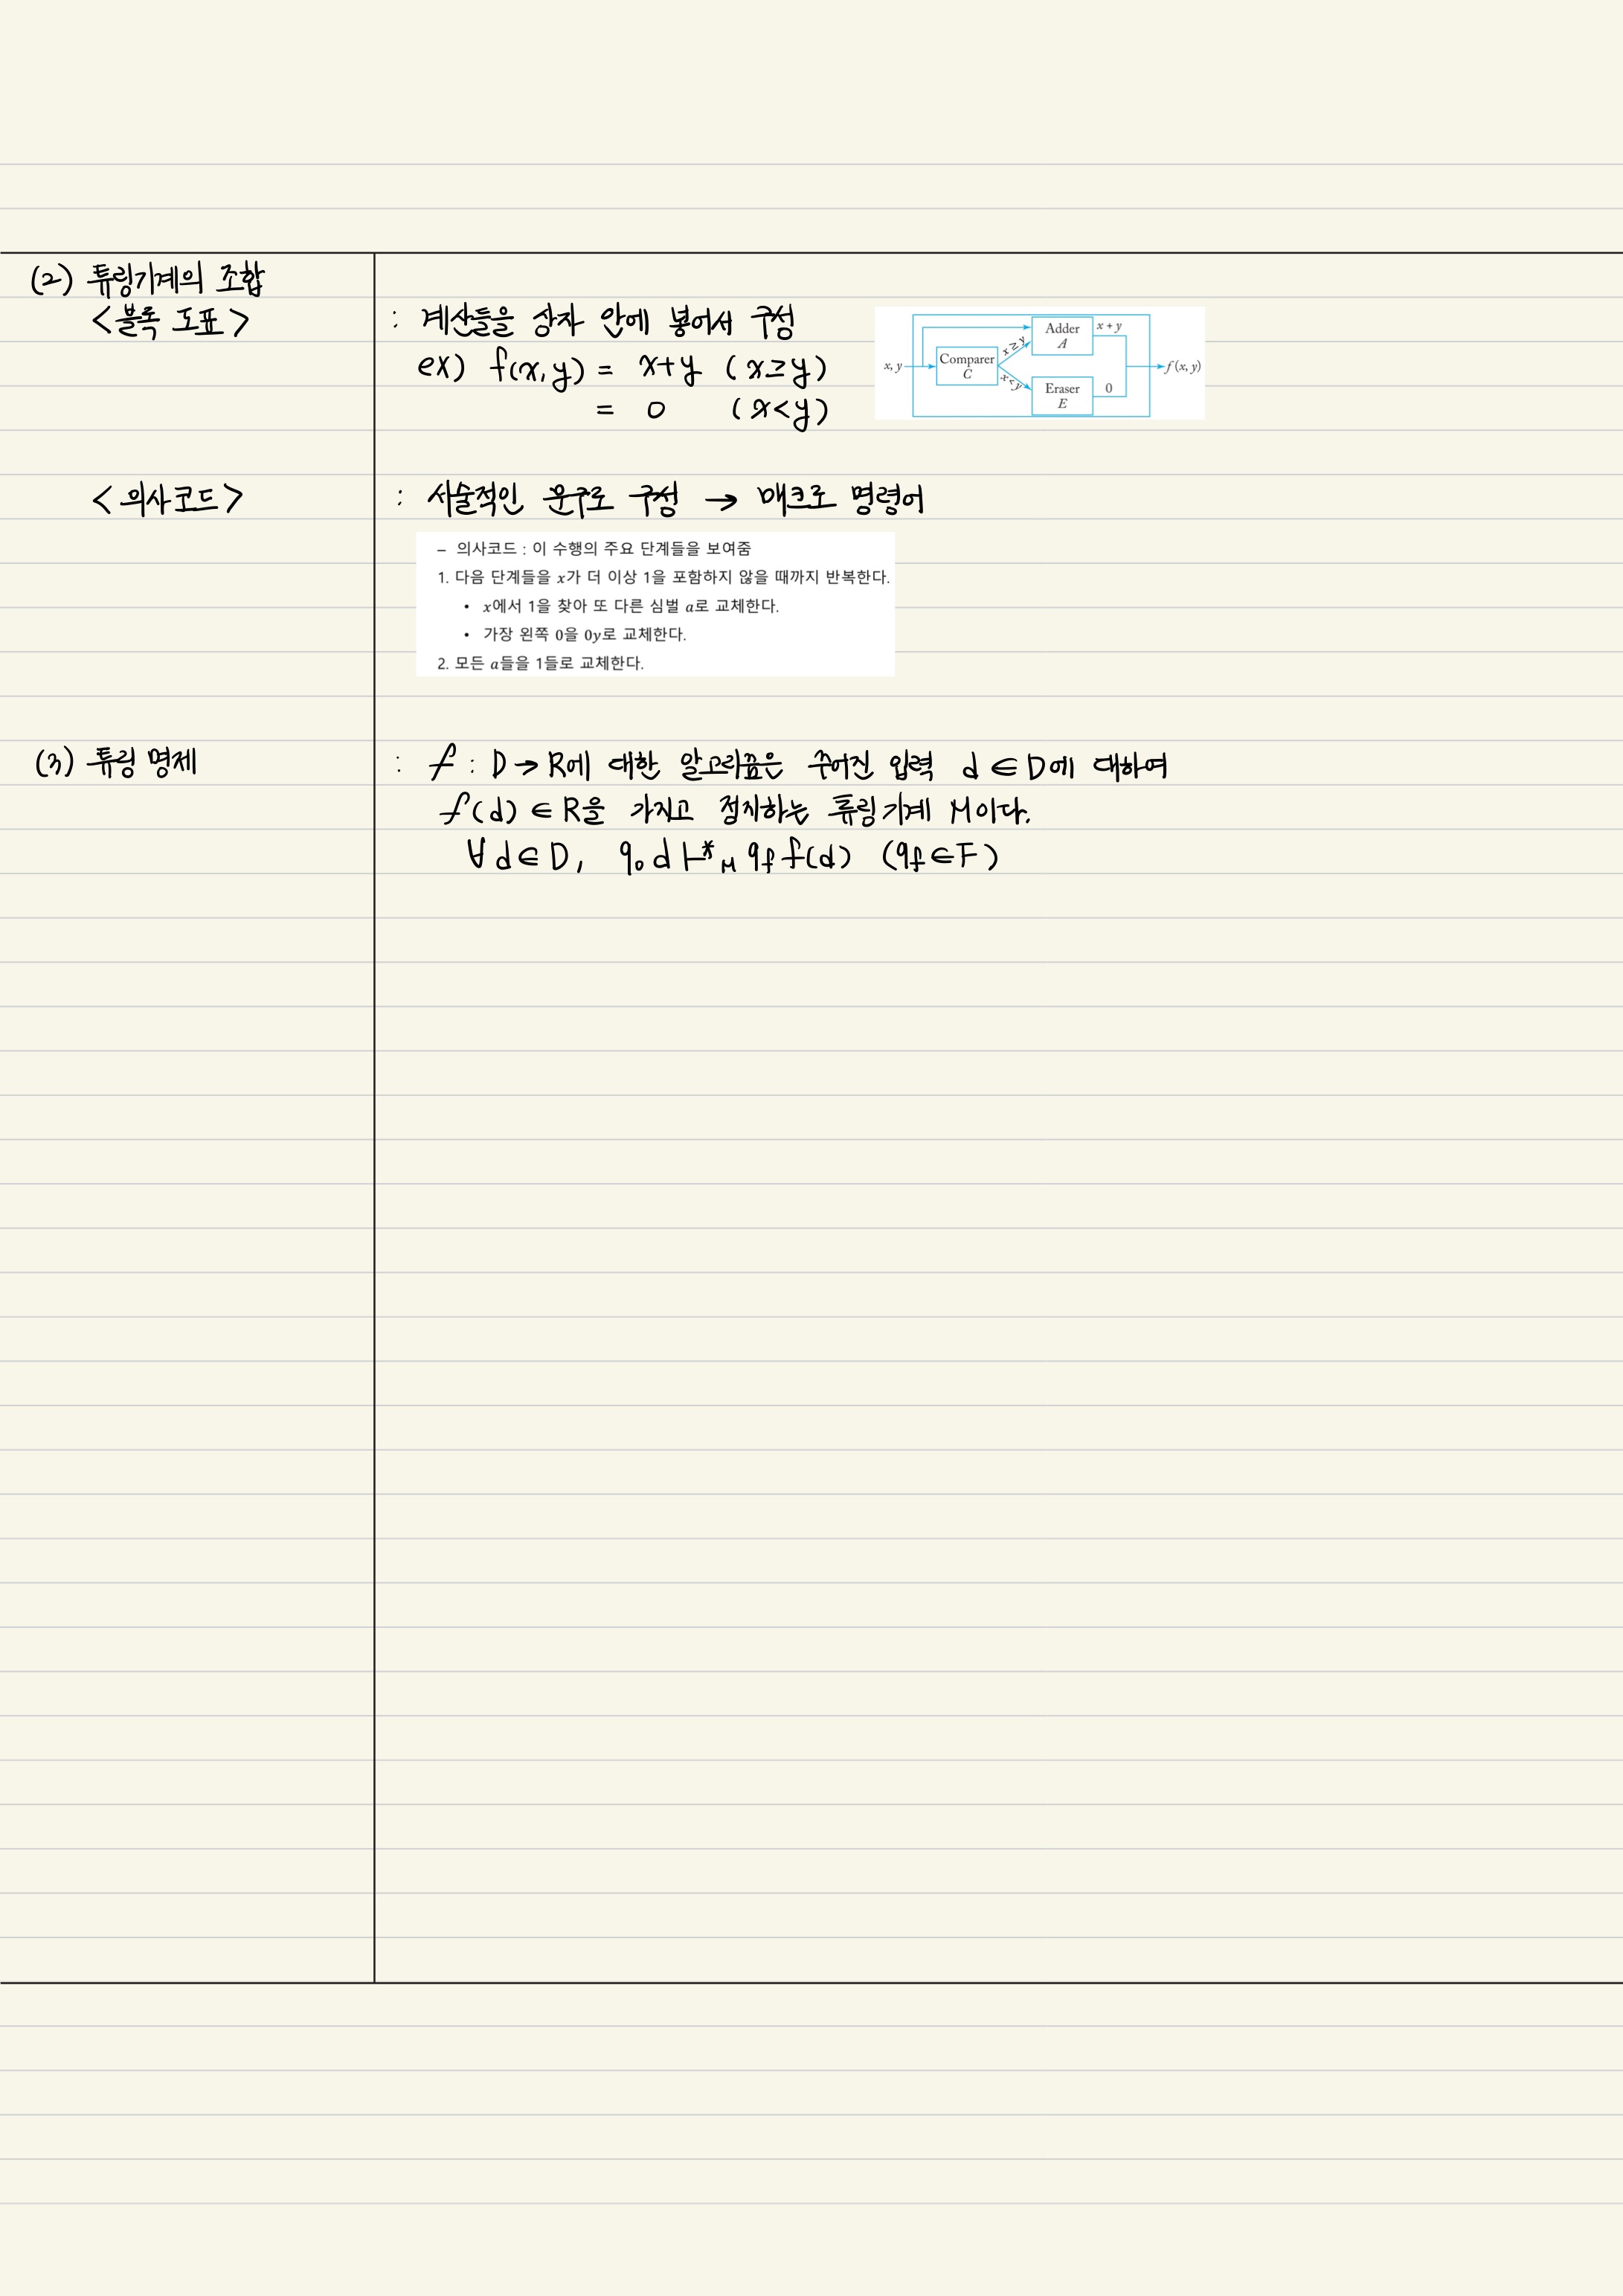 (2) 튜링기계의 조합
<블록 도표> : 계산들을 상자 안에 넣어서 구성
ex) f(x,y) = x+y (x≥y)
= 0 (x<y)
x, y
Comparer
C
x ≥ y
x < y
Adder
A
x + y
Eraser
E
0
f(x, y)
<의사코드> : 서술적인 문구로 구성 → 매크로 명령어
– 의사코드 : 이 수행의 주요 단계들을 보여줌
1. 다음 단계들을 x가 더 이상 1을 포함하지 않을 때까지 반복한다.
• x에서 1을 찾아 또 다른 심벌 a로 교체한다.
• 가장 왼쪽 0을 0y로 교체한다.
2. 모든 a들을 1들로 교체한다.
(3) 튜링 명제 : f : D → R에 대한 알고리즘은 주어진 입력 d ∈ D에 대하여
f(d) ∈ R을 가지고 정지하는 튜링기계 M이다.
∀d ∈ D, q₀d ⊢*ₘ q_f f(d) (q_f ∈ F)